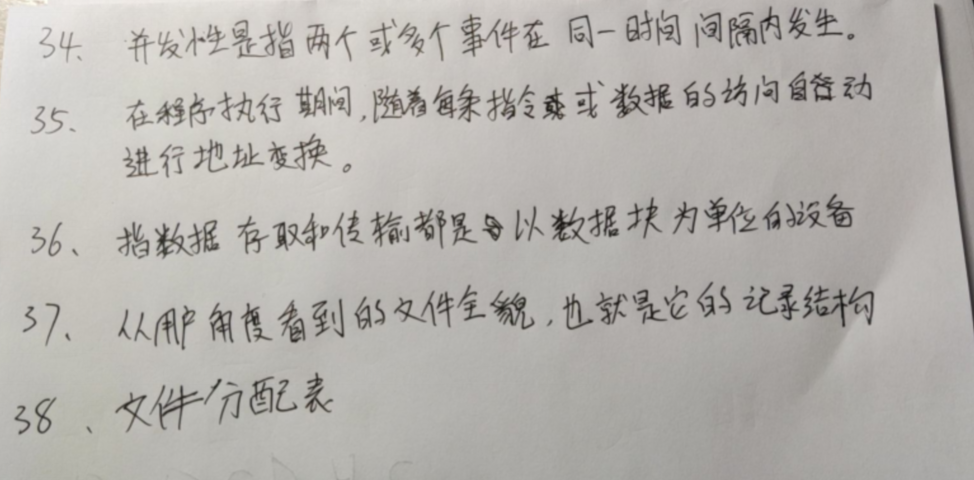 34、并发性是指两个或多个事件在同一时间间隔内发生。
35、在程序执行期间,随着每条指令或数据的访问自动
进行地址变换。
36、指数据存取和传输都是以数据块为单位的设备
37、从用户角度看到的文件全貌,也就是它的记录结构
38、文件分配表